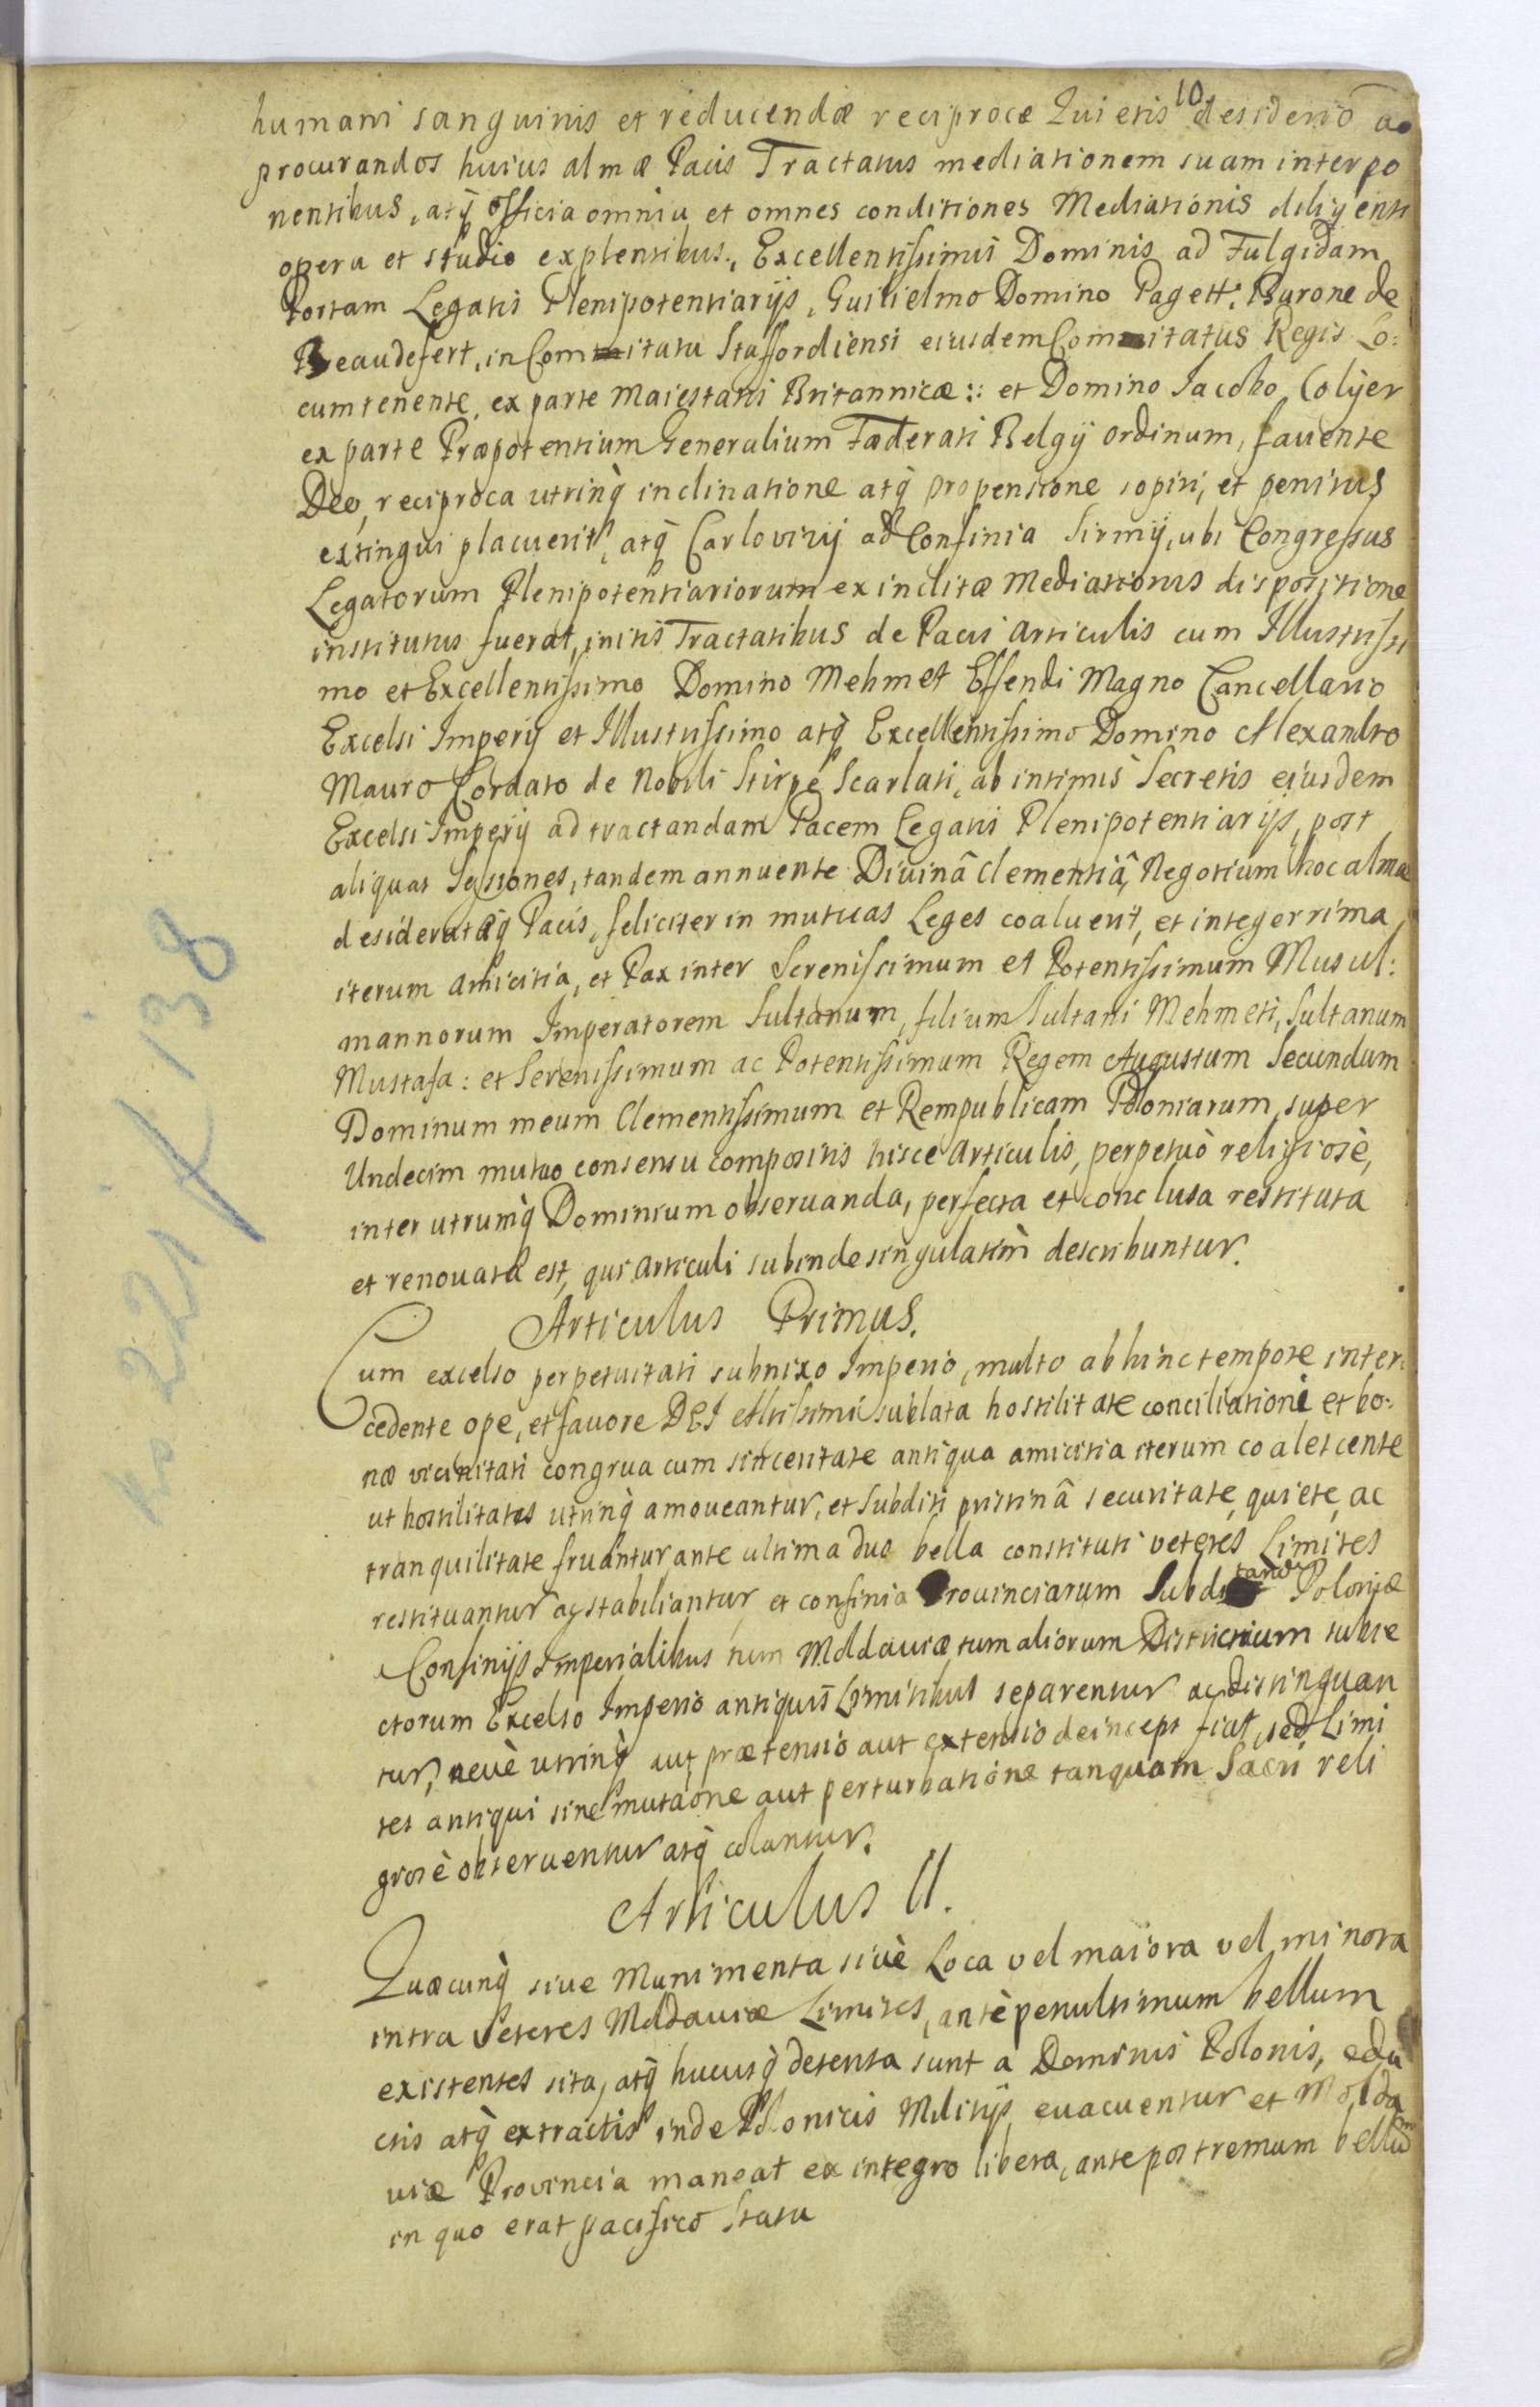 10
humani sanguinis et reducendæ reciprocæ Quietis desiderio ac
procurandos huius almæ Pacis Tractatus mediationem suam interpo
nentibus, atq̀ officia omnia et omnes conditiones Mediationis diligenti
opera et studio explentibus., Excellentissimis Dominis ad Fulgidam
Portam Legatis Plenipotentiarijs, Guilielmo Domino Pagett. Barone de
Beaudesert, in Comitatu Staffordiensi eiusdem Comitatus Regis Lo:
cumtenente, ex parte Maiestatis Britannicæ:: et Domino Iacobo Colyer
ex parte Præpotentium Generalium Fæderati Belgij ordinum, fauente
Deo, reciproca utrinq̀ inclinatione atq̀ propensione sopiri, et penitus
extingui placuerit, atq̀ Carlovizij ad Confinia Sirmij, ubi Congressus
Legatorum Plenipotentiariorum ex inclitæ Mediationis dispositione
institutus fuerat, initis Tractatibus de Pacis Articulis cum Illustrissi
mo et Excellentissimo Domino Mehmet Effendi Magno Cancellario
Excelsi Imperij et Illustrissimo atq̀ Excellentissimo Domino Alexandro
Mauro Cordato de Nobili Stirpe Scarlati, ab intimis Secretis eiusdem
Excelsi Imperij ad tractandam Pacem Legatis Plenipotentiarijs, post
aliquas Sessiones, tandem annuente Diuinâ Clementiâ, Negotium hoc almæ
desideratæq̀ Pacis, feliciter in mutuas Leges coaluerit, et integerrima
iterum Amicitia, et Pax inter Serenissimum et Potentissimum Musul:
mannorum Imperatorem Sultanum, filium Sultani Mehmeti, Sultanum
Mustafa: et Serenissimum ac Potentissimum Regem Augustum Secundum
Dominum meum Clementissimum et Rempublicam Poloniarum, super
Undecim mutuo consensu compositis hisce Articulis, perpetuò religiosè,
inter utrumq̀ Dominium obseruanda, perfecta et conclusa restituta
et renouata est, qui Articuli subinde singulatim describuntur.
Articulus Primus.
Cum excelso perpetuitati subnixo Imperio, multo abhinc tempore inter:
cedente ope, et fauore DEI Altissimi sublata hostilitate conciliationi et bo:
næ vicinitati congrua cum sinceritate antiqua amicitia iterum coalescente
ut hostilitates utrinq̀ amoueantur, et Subditi pristinâ securitate, quiete, ac
tranquilitate fruantur ante ultima duo bella constituti veteres Limites
restituantur ac stabiliantur et confinia Prouinciarum Subditarum Poloniæ
Confinijs Imperialibus tum Moldauiæ tum aliorum Districtuum subie
ctorum Excelso Imperio antiquis Limitibus separentur ac distinguan
tur, neuè utrinq̀ aut prætensio aut extensio deinceps fiat, sed Limi
tes antiqui sine mutaone aut perturbatione tanquam Sacri reli
giosè obseruentur atq̀ colantur.
Articulus II.
Quæcunq̀ siue Munimenta siuè Loca vel maiora vel minora
intra Veteres Moldauiæ Limites, antè penultimum bellum
existentes sita, atq̀ hucusq̀ detenta sunt a Dominis Polonis, edu
ctis atq̀ extractis inde Polonicis Militijs euacuentur et Molda
uiæ Prouincia maneat ex integro libera, ante postremum bellum
in quo erat pacifico Statu
K 138